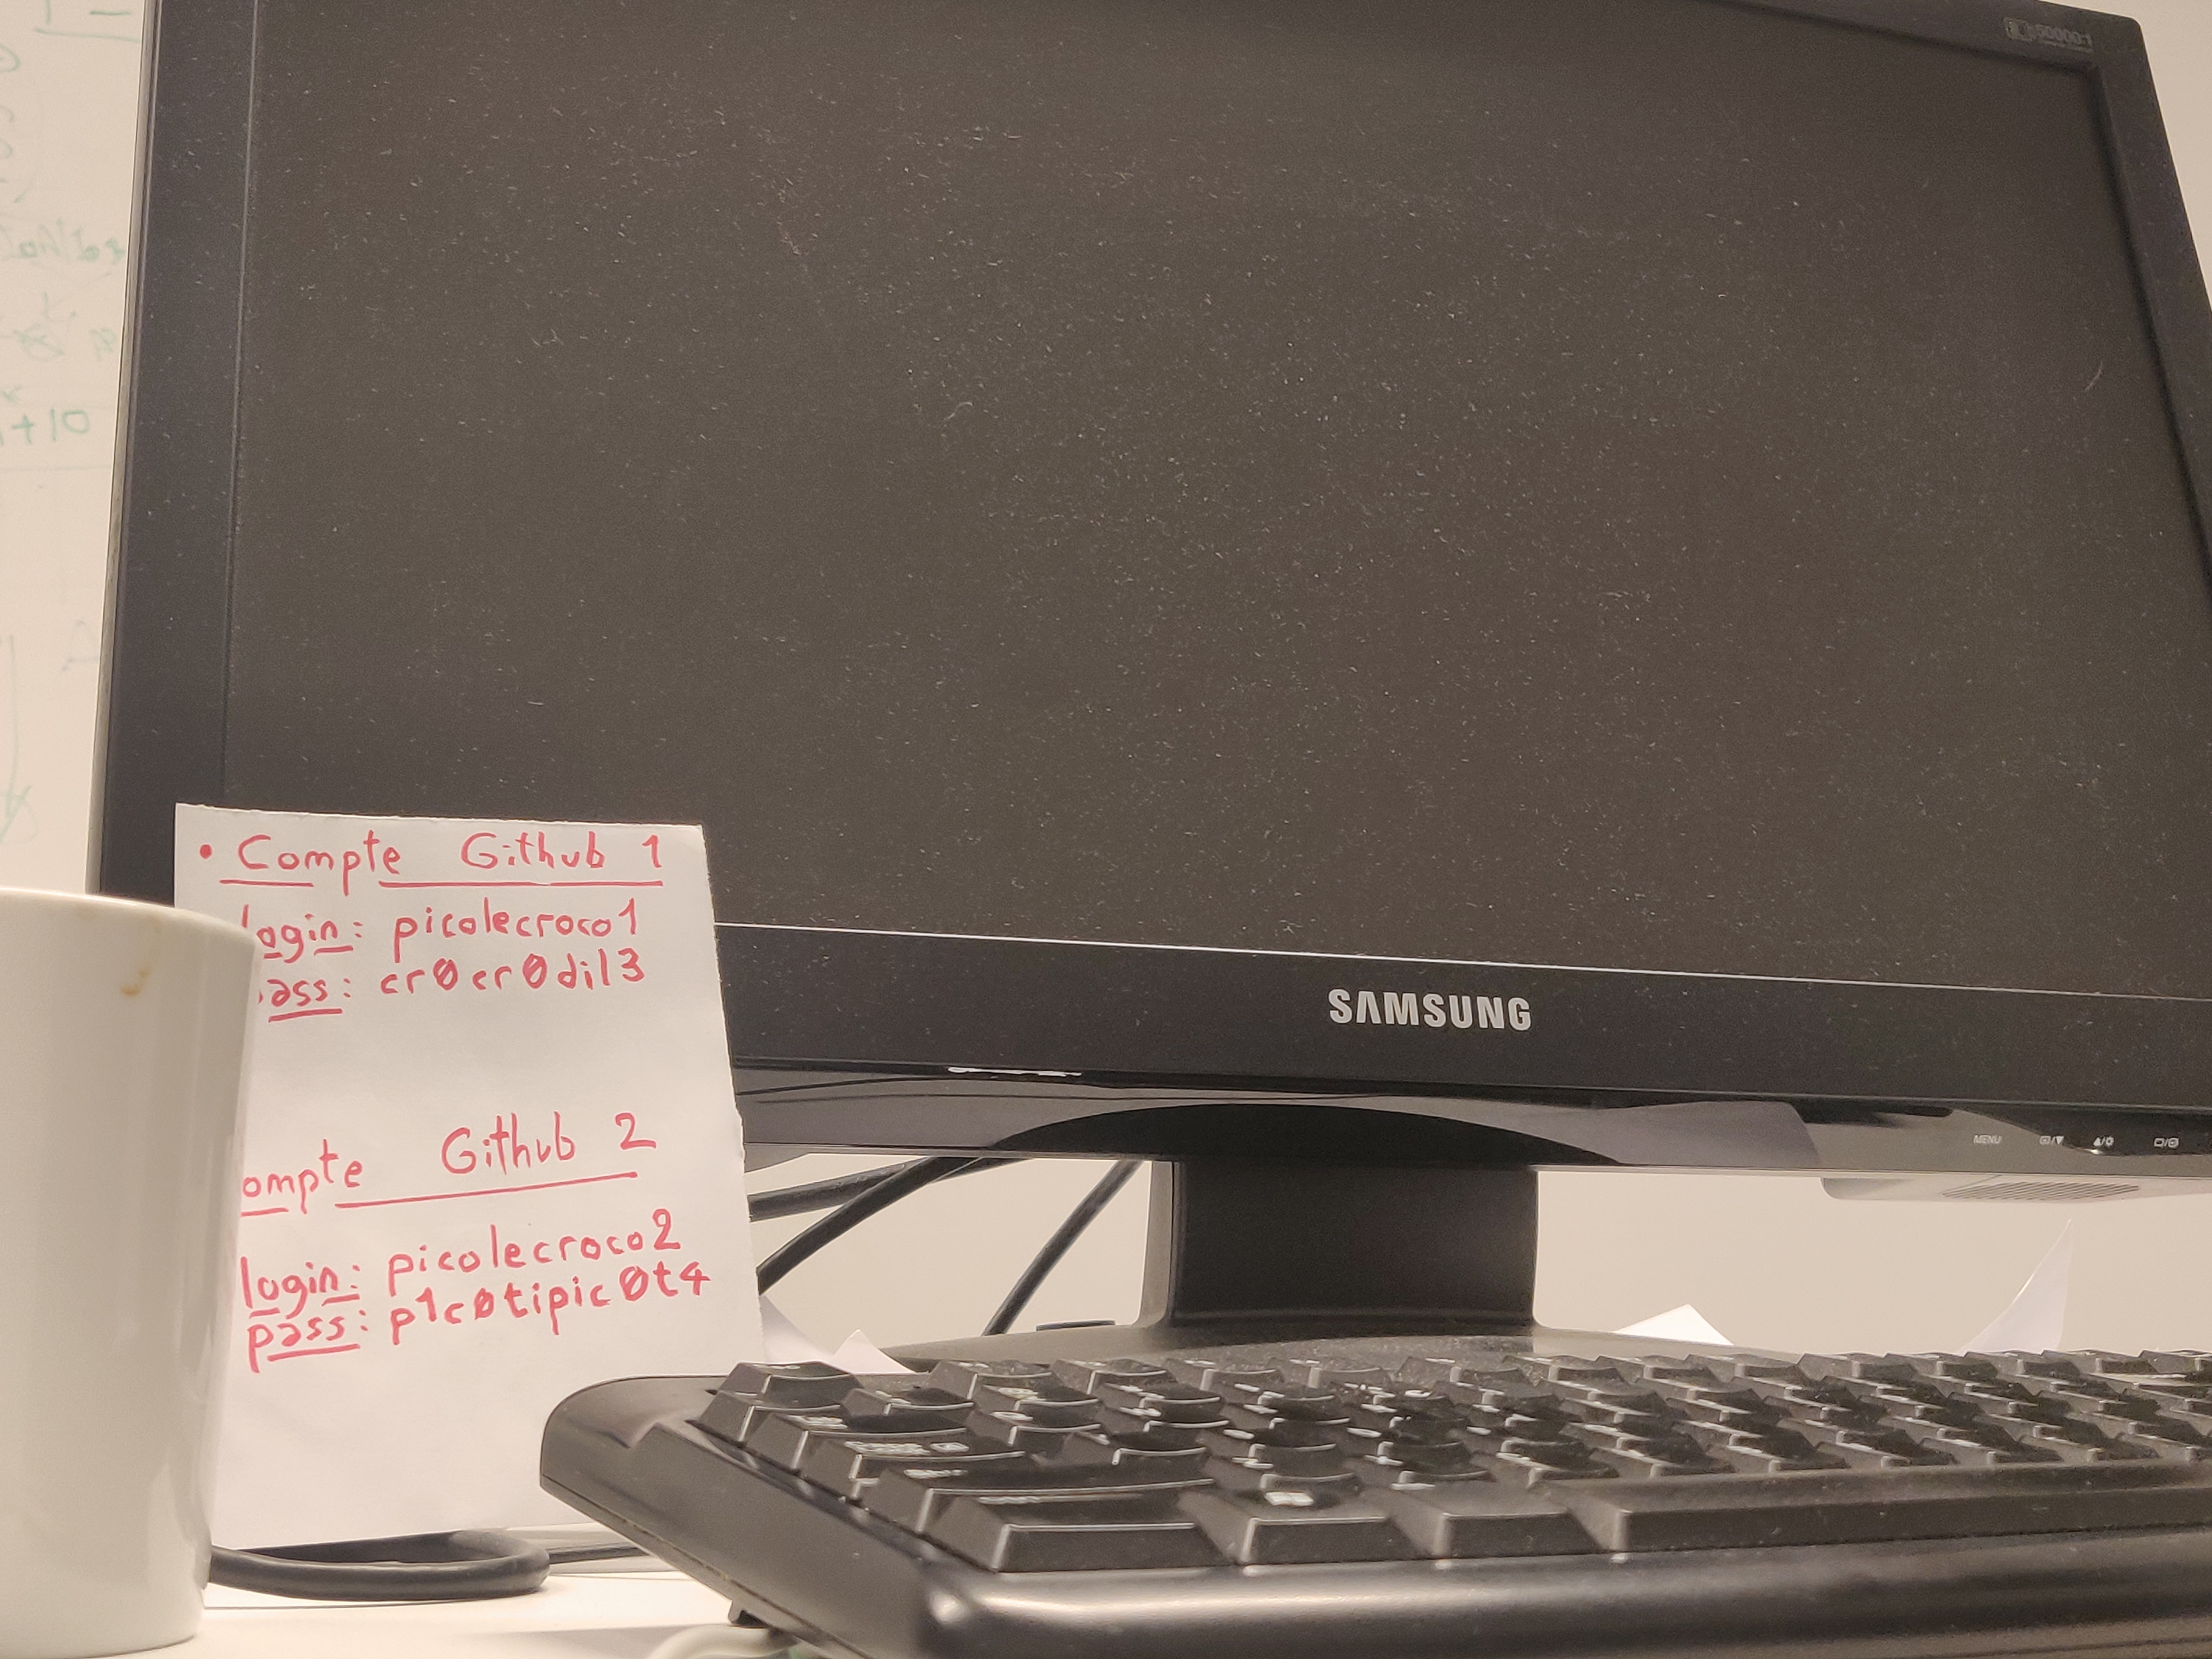 50000:1
+10
• Compte Github 1
login: picolecroco1
pass: cr0cr0dil3
ompte Github 2
login: picolecroco2
pass: p1c0tipic0t4
SAMSUNG
MENU